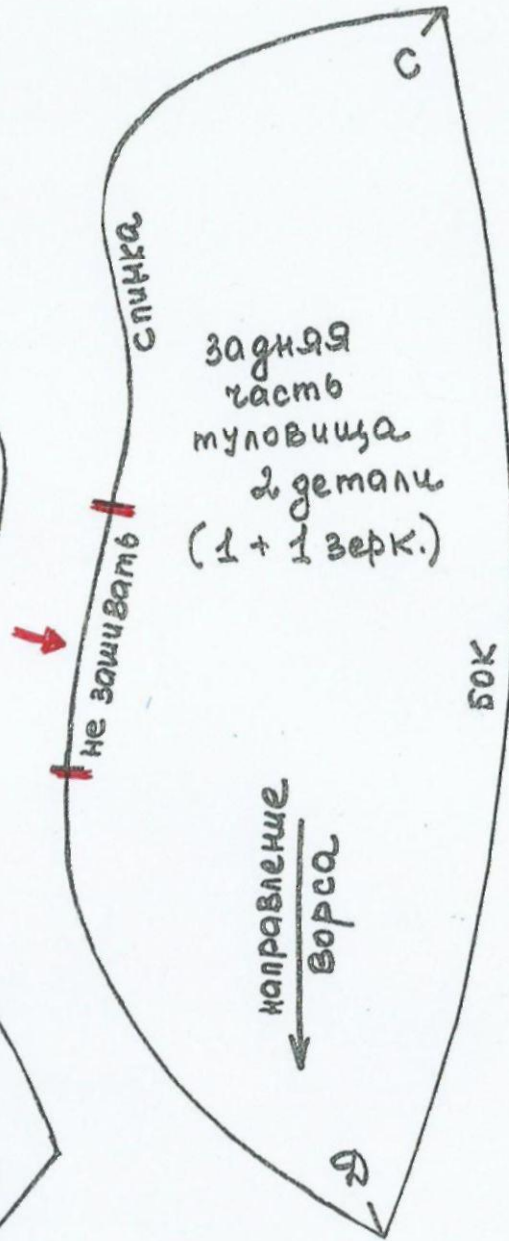 С
спинка
задняя
часть
туловища
2 детали
(1 + 1 зерк.)
не зашивать
бок
направление
ворса
Д